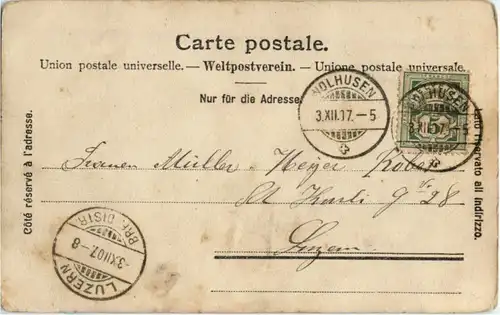 Carte postale.
Union postale universelle. — Weltpostverein. — Unione postale universale.
Nur für die Adresse.
WOLHUSEN
3.XII.07.—5
WOLHUSEN
3.XII.07.—5
5
Côté réservé à l'adresse.
Lato riservato all indirizzo.
Frauen Müller-Meyer
St Karli 28
Luzern
LUZERN
-3XII07.-8
BRF. DISTR.